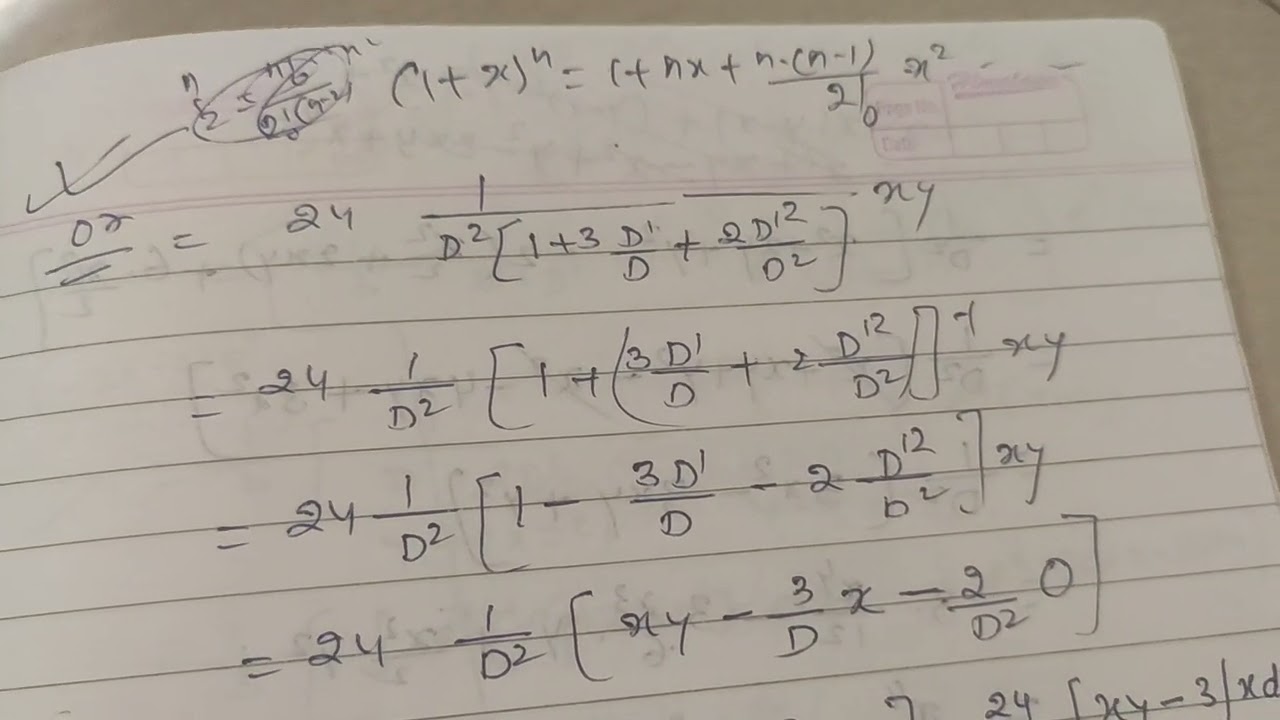 (1+x)^n = 1+nx+ n·(n-1)/2! x² - -
or = 24 1/D²[1+3 D'/D + 2D'²/D²] xy
= 24 1/D² [1+(3D'/D + 2 D'²/D²)]^-1 xy
= 24 1/D² [1 - 3D'/D - 2 D'²/D²] xy
= 24 1/D² [xy - 3/D x - 2/D² 0]
24 [xy-3∫xd